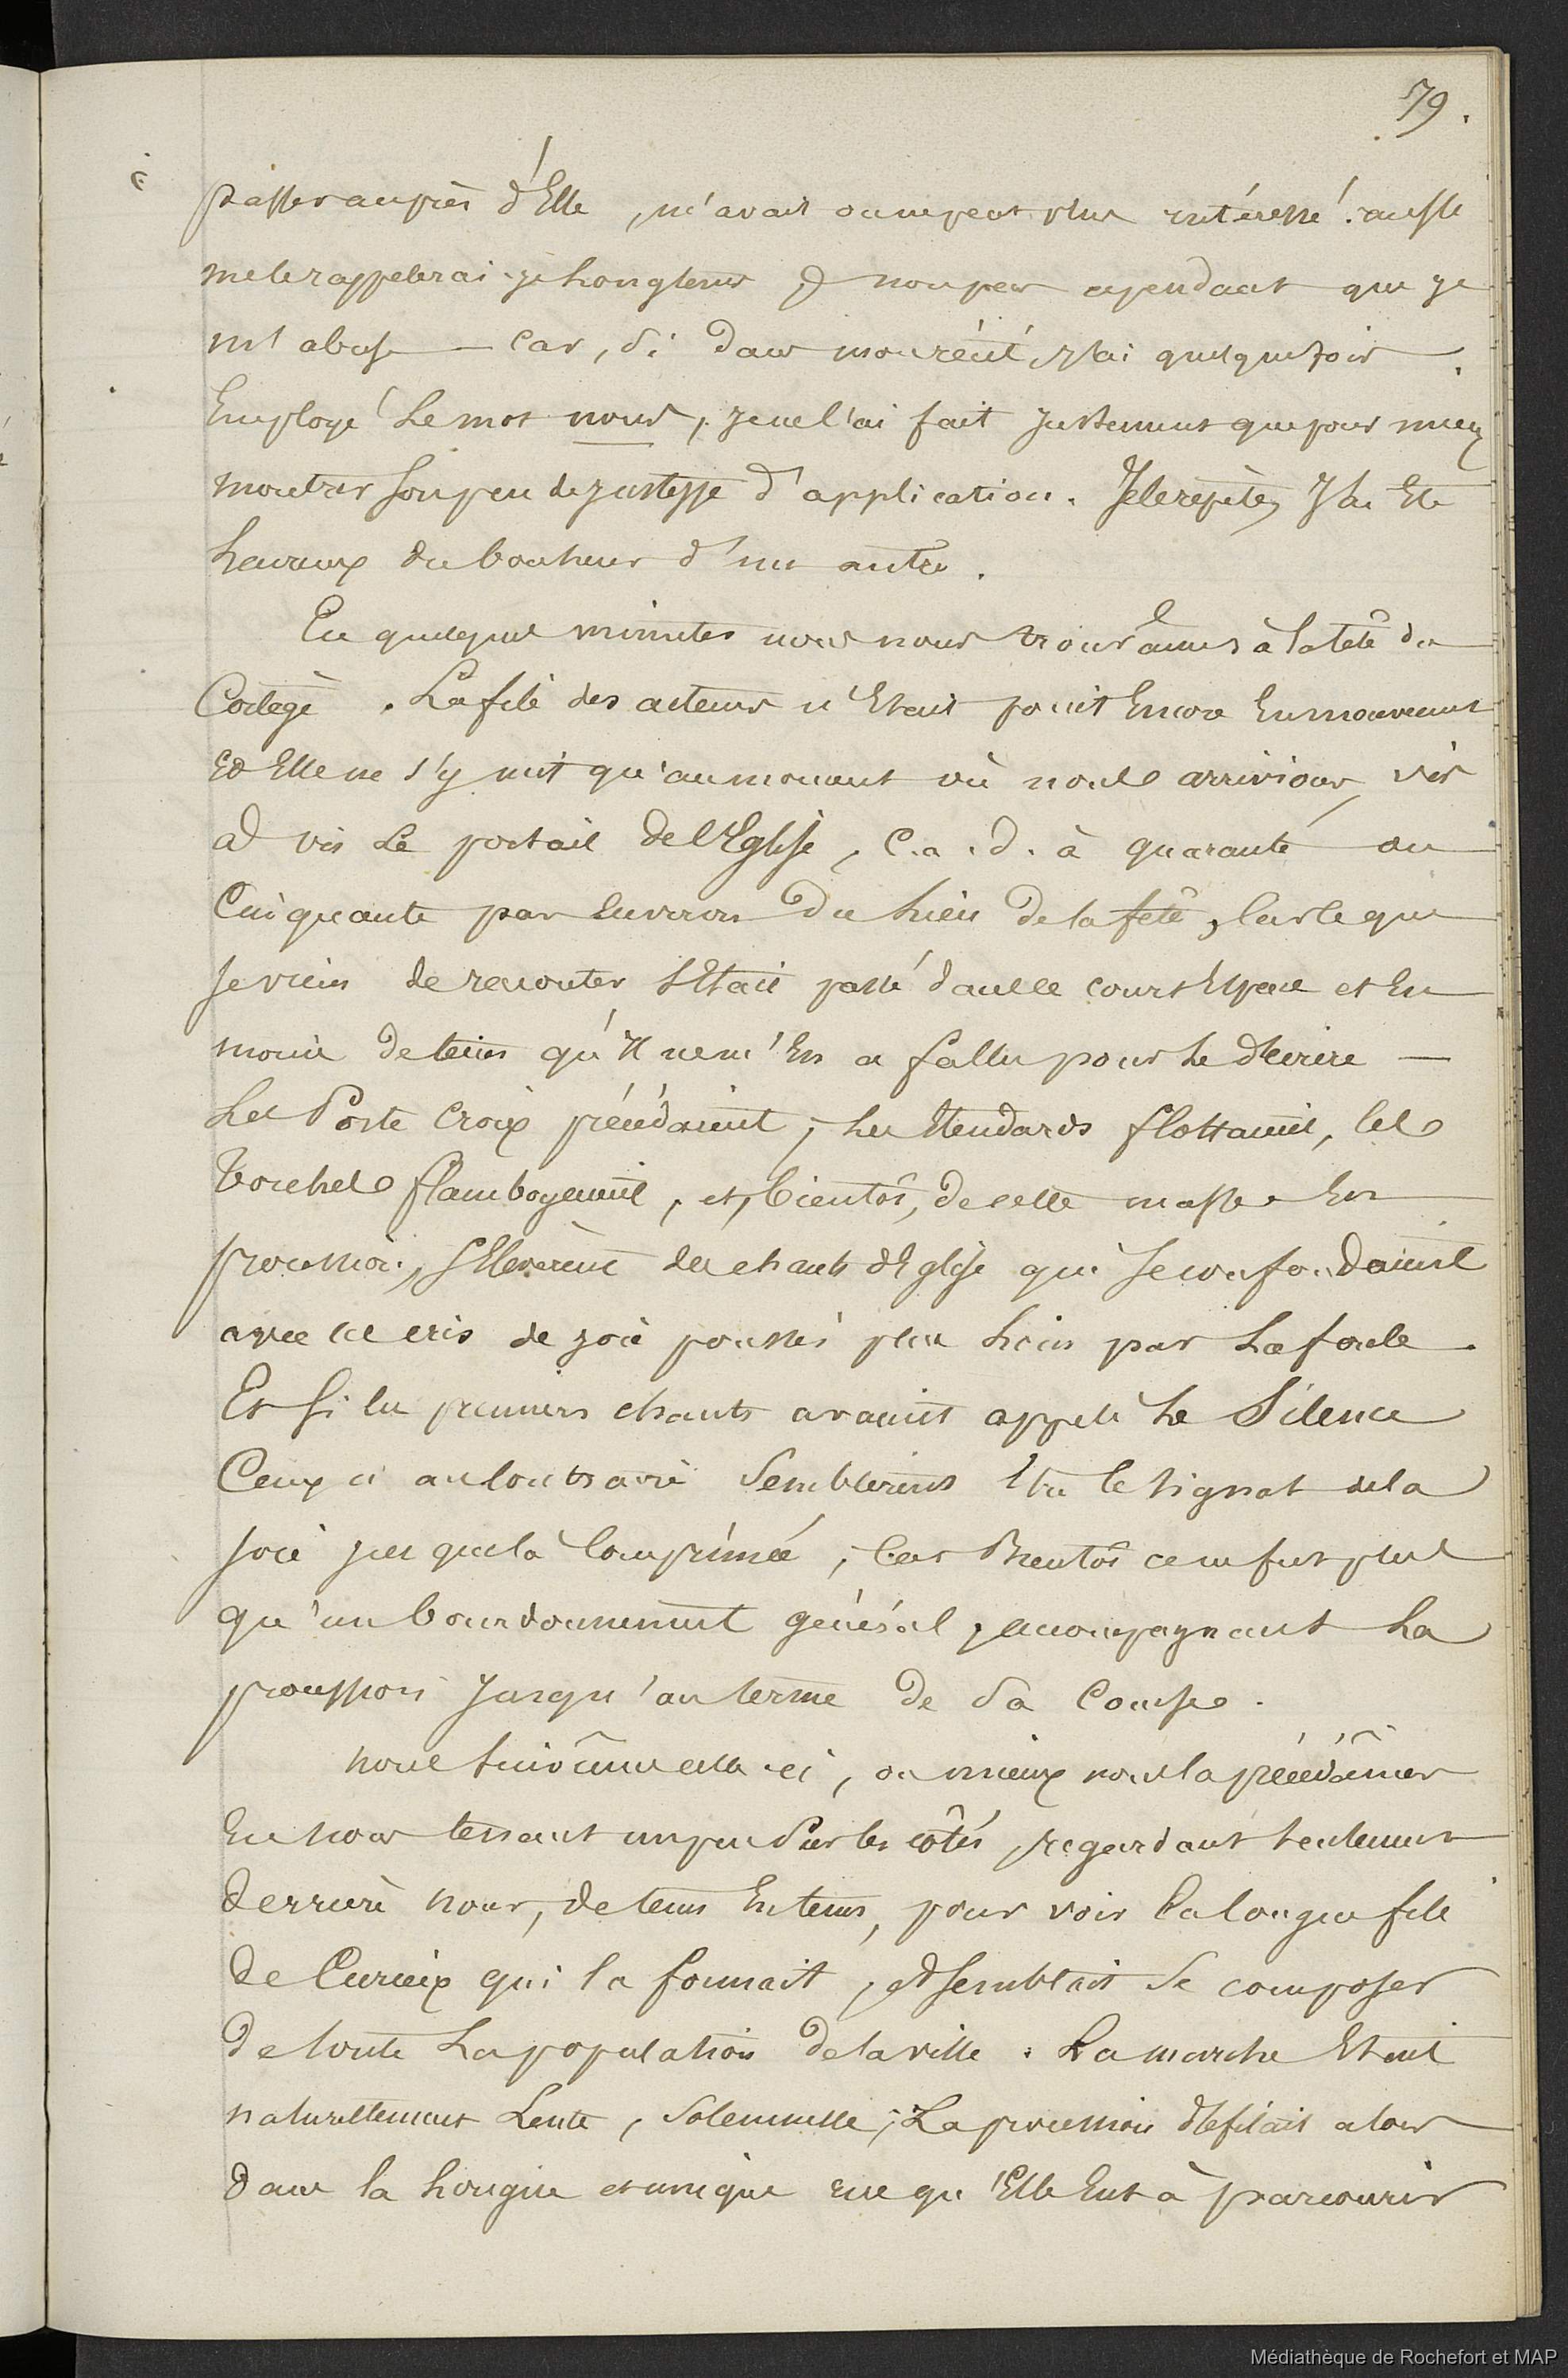 79.
passer auprès d'Elle, m'avait on ne peut plus intéressé. aussi
me le rappelerai-je longtems, non pas cependant que je
m'abuse — car, si dans mon récit, j'ai quelquefois
Employé le mot nous, je ne l'ai fait justement que pour mieux
montrer son peu de justesse d'application. Je le répète, J'ai Eté
heureux du bonheur d'un autre.
En quelques minutes nous nous trouvâmes à la tête du
Cortège. La file des acteurs n'Etait point Encore En mouvement
Et Elle ne s'y mit qu'au moment où nous arrivions, vis
à vis le portail de l'Eglise, c.a.d. à quarante ou
Cinquante pas Environ du lieu de la fête, car ce que
je viens de raconter s'Etait passé dans ce court Espace et En
moins de tems qu'il ne m'En a fallu pour le décrire —
Les Porte Croix précédaient, les Etendards flottaient, les
Torches flamboyaient, et, bientôt, de cette masse En
procession, s'Elevèrent des chants d'Eglise qui se confondaient
avec les cris de joie poussés plus loin par la foule.
Et si les premiers chants avaient appelé le Silence
Ceux ci au contraire semblèrent Etre le signal de la
joie jusque là comprimée, Car Bientôt ce ne fut plus
qu'un bourdonnement général, accompagnant la
procession jusqu'au terme de sa Course.
Nous suivîmes celle-ci, ou mieux nous la précédâmes
En nous tenant un peu Sur les côtés, regardant seulement
derrière nous, de tems En tems, pour voir la longue file
de Curieux qui la formait, et semblait se composer
de toute la population de la ville. La marche Etait
naturellement Lente, Solennelle; La procession défilait alors
dans la longue et unique rue qu'Elle Eut à parcourir
Médiathèque de Rochefort et MAP